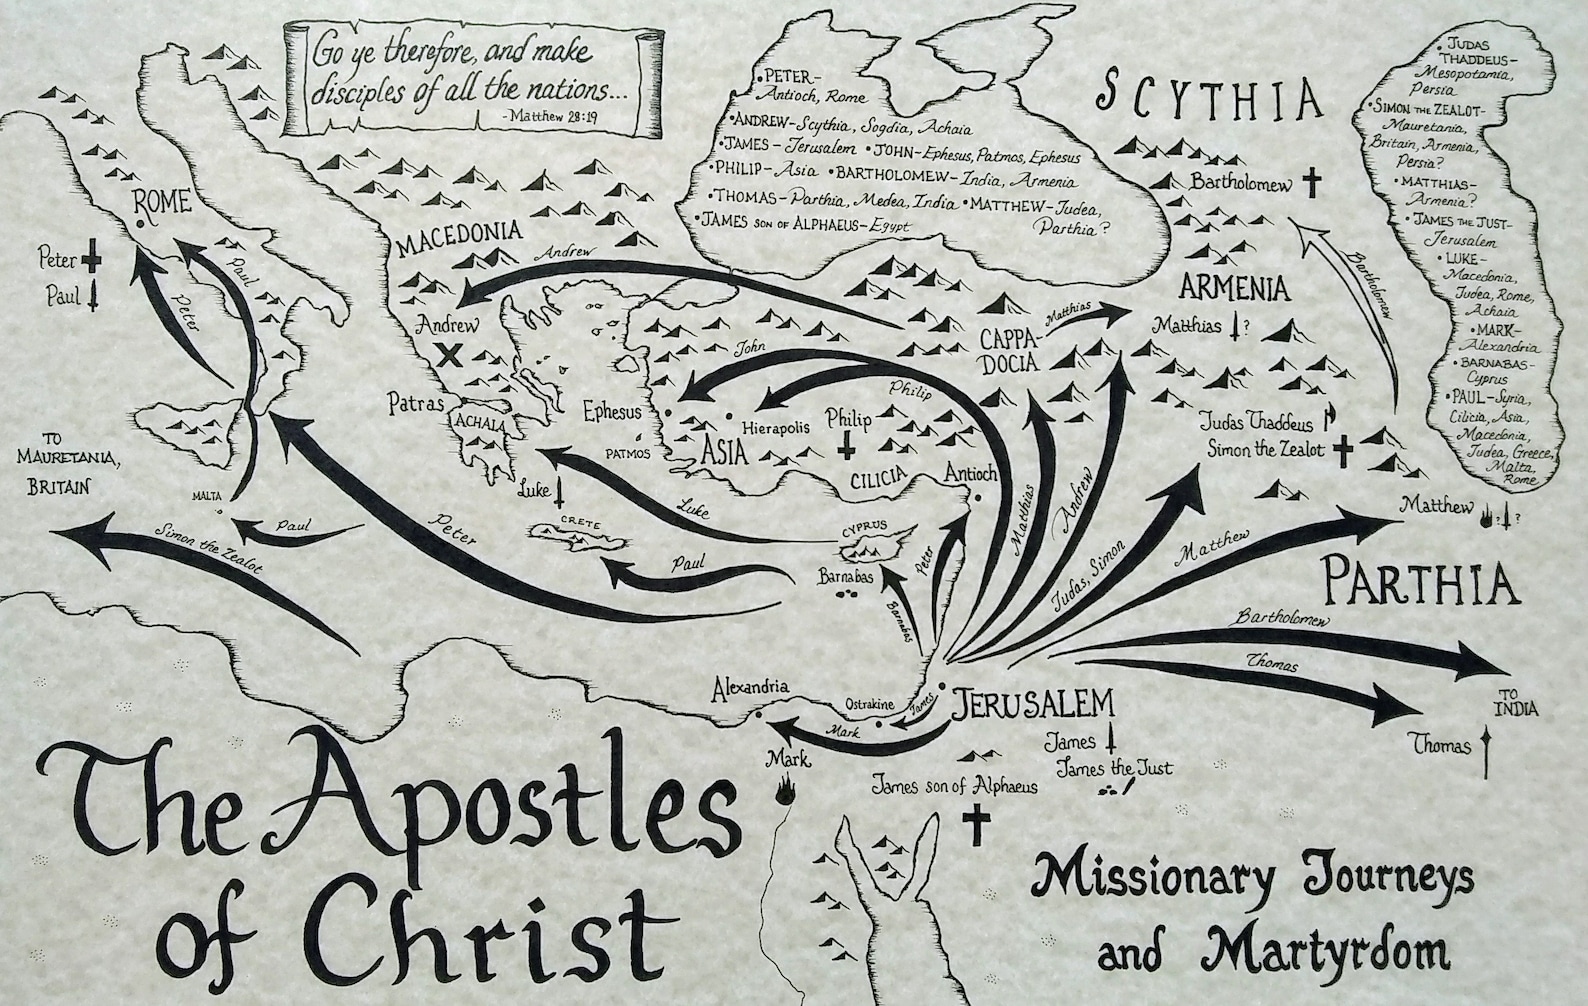 Go ye therefore, and make
disciples of all the nations...
-Matthew 28:19
•PETER-
Antioch, Rome
•ANDREW-Scythia, Sogdia, Achaia
•JAMES-Jerusalem •JOHN-Ephesus, Patmos, Ephesus
•PHILIP-Asia •BARTHOLOMEW-India, Armenia
•THOMAS-Parthia, Medea, India •MATTHEW-Judea,
Parthia?
•JAMES SON OF ALPHAEUS-Egypt
SCYTHIA
•JUDAS
THADDEUS-
Mesopotamia,
Persia
•SIMON THE ZEALOT-
Mauretania,
Britain, Armenia,
Persia?
•MATTHIAS-
Armenia?
•JAMES THE JUST-
Jerusalem
•LUKE-
Macedonia,
Judea, Rome,
Achaia
•MARK-
Alexandria
•BARNABAS-
Cyprus
•PAUL-Syria,
Cilicia, Asia,
Macedonia,
Judea, Greece,
Malta,
Rome
Bartholomew
Bartholomew
ARMENIA
Matthias ?
ROME
Peter
Paul
Peter
Paul
MACEDONIA
Andrew
Andrew
Patras
ACHAIA
CAPPA-
DOCIA
Matthias
John
Philip
Ephesus
Hierapolis
Philip
PATMOS
ASIA
CILICIA
Antioch
Judas Thaddeus
Simon the Zealot
TO
MAURETANIA,
BRITAIN
MALTA
Paul
Simon the Zealot
Peter
Luke
Luke
CRETE
Paul
CYPRUS
Barnabas
Barnabas
Peter
Matthias
Andrew
Judas, Simon
Matthew
Matthew ? ?
PARTHIA
Bartholomew
Thomas
TO
INDIA
Thomas
Alexandria
Ostrakine
James
Mark
Mark
JERUSALEM
James
James the Just
James son of Alphaeus
The Apostles
of Christ
Missionary Journeys
and Martyrdom